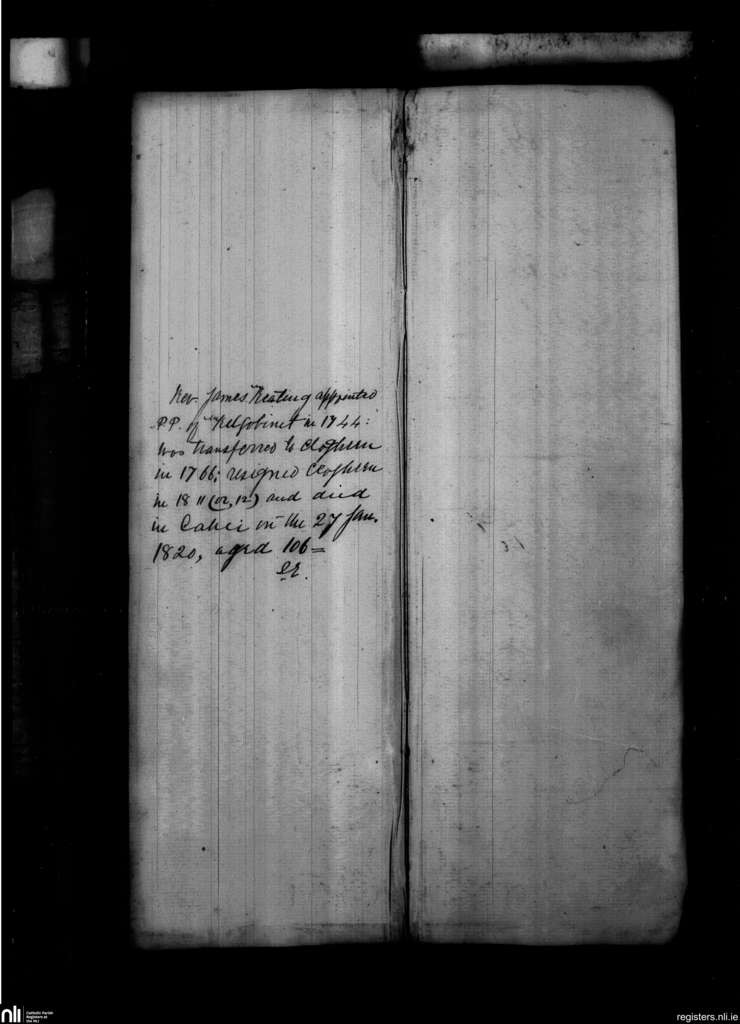 Rev. James Keating appointed
P.P. of Kilgobinet in 1744:
was transferred to Clogheen
in 1766; resigned Clogheen
in 1811 (or, 12) and died
in Cahir on the 27 Jan.
1820, aged 106 =
nli
Catholic Parish
Registers at
the NLI
registers.nli.ie